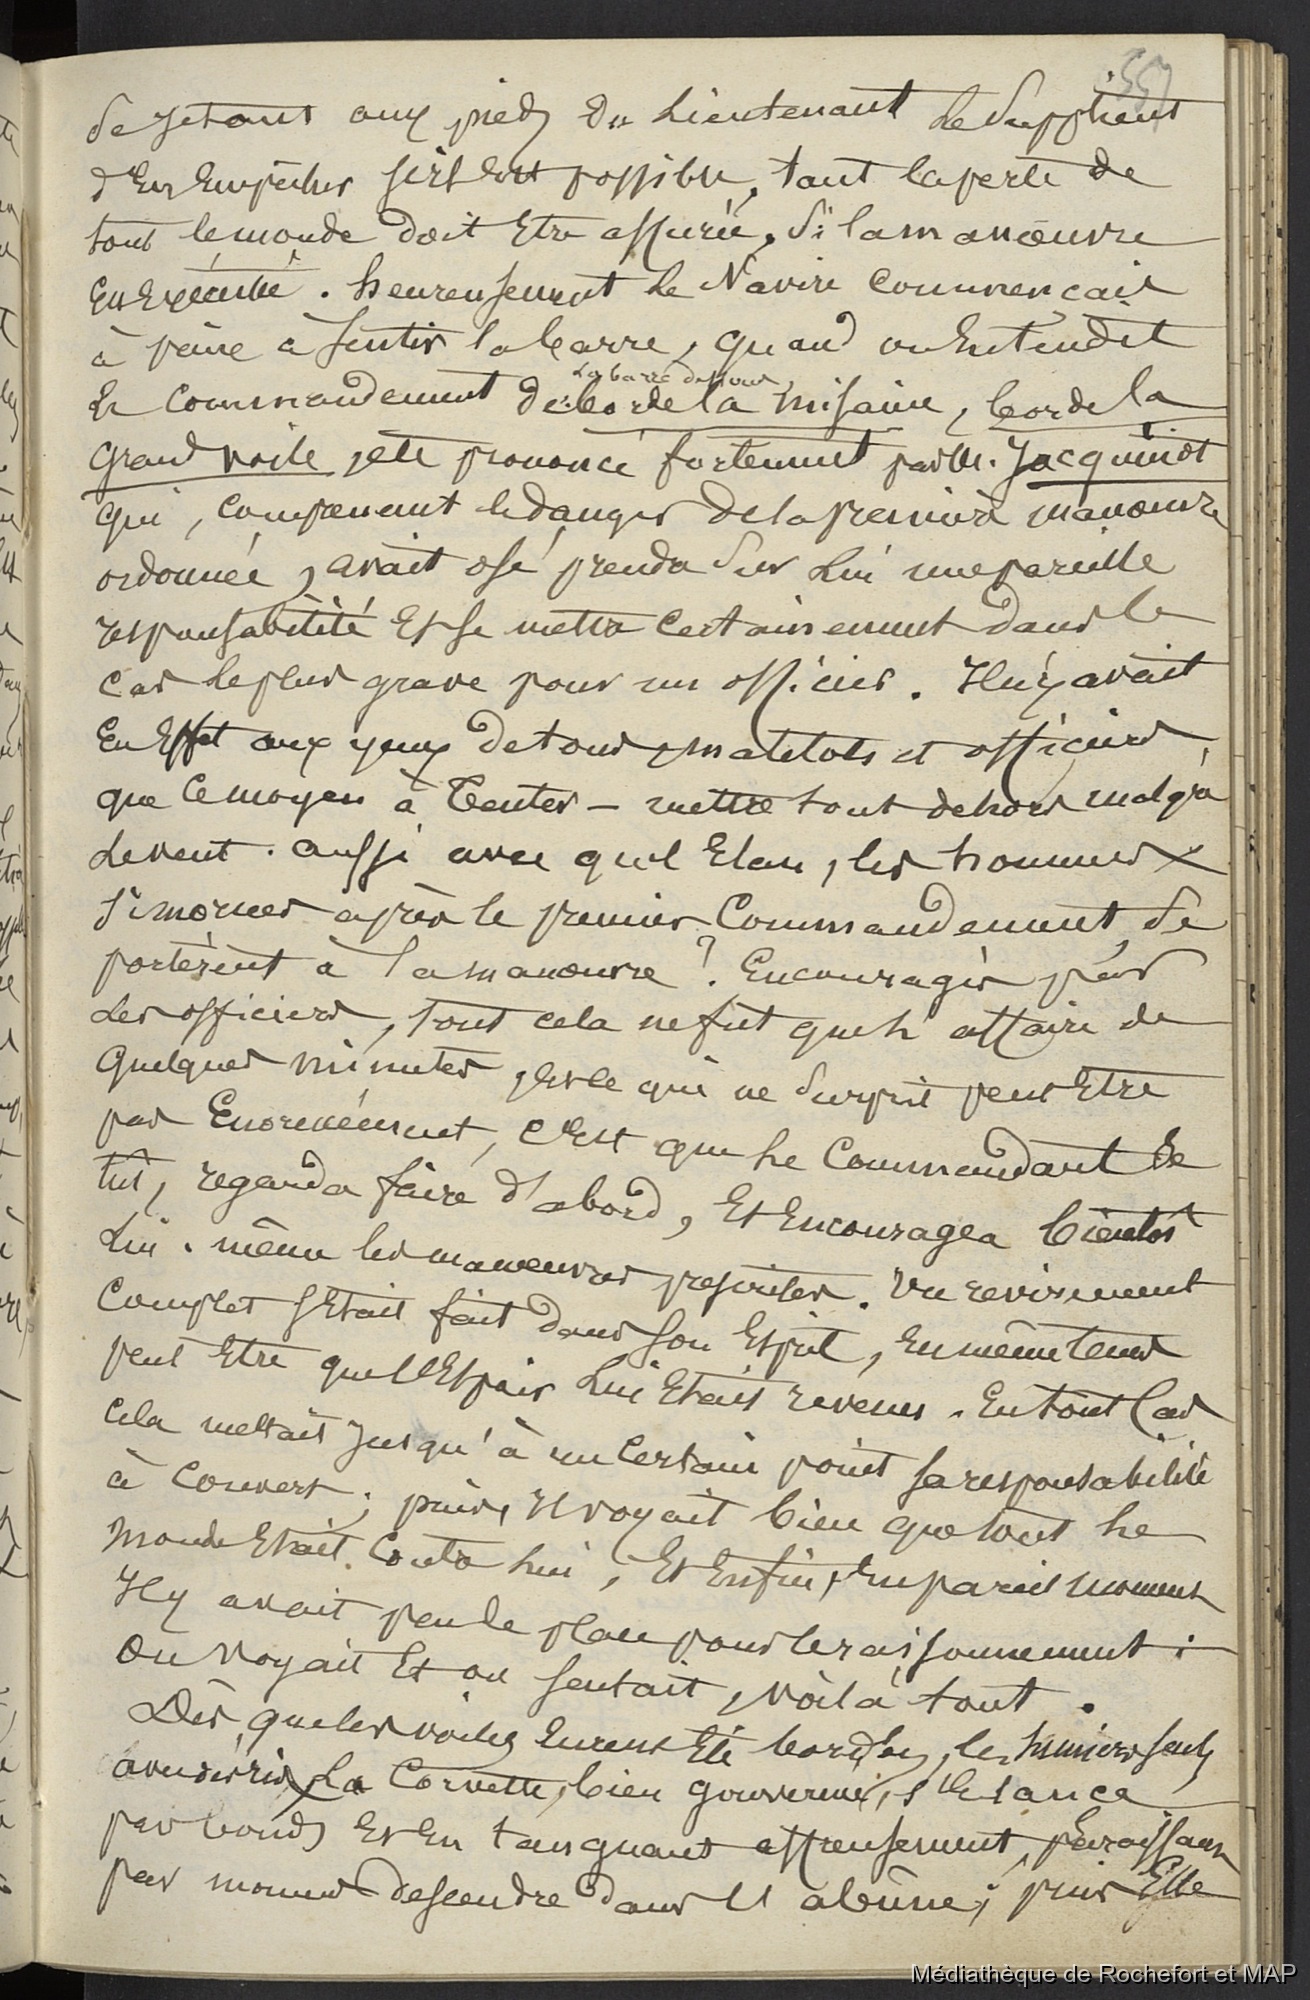 557
Se jetant aux pieds du Lieutenant le Supplient
d'En Empêcher s'il Est possible, tant la perte de
tout le monde doit Etre assurée, Si la manœuvre
Est Exécutée. heureusement le Navire commençait
à peine à sentir la barre, quand on Entendit
le Commandement de: borde la misaine, borde la
La barre dessous,
Grand voile, jeté prononcé fortement par M. Jacquinot
qui, comprenant le danger de la première manœuvre
ordonnée, avait osé prendre Sur Lui une pareille
responsabilité Et se mettre certainement dans le
cas le plus grave pour un officier. Il n'y avait
En Effet aux yeux de tous, matelots et officiers,
que ce moyen à Tenter – mettre tout dehors malgré
le vent. aussi avec quel Elan, les hommes
si mornes après le premier Commandement, Se
portèrent à la manœuvre! Encouragés par
Les officiers, tout cela ne fut que l'affaire de
quelques minutes, Et ce qui ne Surprit peut Etre
pas Enormément, c'Est que le Commandant Se
tut, regarda faire d'abord, Et Encouragea bientôt
Lui-même les manœuvres prescrites. Un revirement
complet s'Etait fait dans son Esprit, En même tems
peut Etre que l'Espoir Lui Etait revenu. En tout Cas
cela mettait jusqu'à un certain point sa responsabilité
à couvert; puis, Il voyait bien que tout le
monde Etait Contre Lui, Et Enfin, En pareil moment
Il y avait peu de place pour le raisonnement:
On voyait Et on sentait, voilà tout.
Dès que les voiles Eurent Eté bordées, les huniers seuls
avec des ris, La Corvette, bien gouvernée, s'Elança
par bonds Et En tanguant affreusement, paraissant
par moment descendre dans l'abîme; puis Elle
Médiathèque de Rochefort et MAP